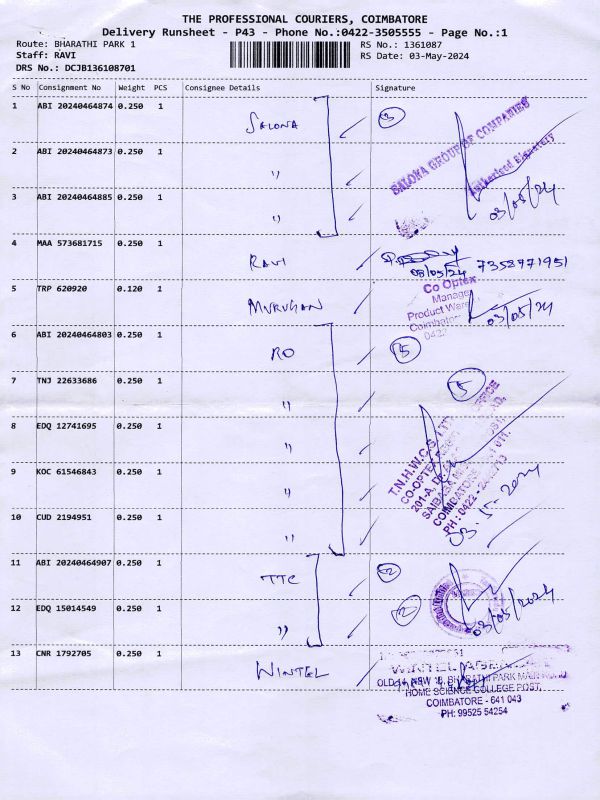 THE PROFESSIONAL COURIERS, COIMBATORE
Delivery Runsheet - P43 - Phone No.:0422-3505555 - Page No.:1
Route: BHARATHI PARK 1
RS No.: 1361087
Staff: RAVI
RS Date: 03-May-2024
DRS No.: DCJB136108701
S No Consignment No Weight PCS Consignee Details Signature
1 ABI 20240464874 0.250 1 SALONA 3
SALONA GROUP OF COMPANIES
Authorised Signatory
2 ABI 20240464873 0.250 1 "
3 ABI 20240464885 0.250 1 "
03/05/24
4 MAA 573681715 0.250 1 RAVI
03/05/24 7358971951
5 TRP 620920 0.120 1 MURUGAN
Co Optex
Manage
Product Ware
Coimbato
0422
03/05/24
6 ABI 20240464803 0.250 1 RO 5
7 TNJ 22633686 0.250 1 " 5
8 EDQ 12741695 0.250 1 "
T.N.H.W.C.S. LTD
CO-OPTEX
201-A,
SAIBABA
COIMBATORE
PH : 0422 -
9 KOC 61546843 0.250 1 "
10 CUD 2194951 0.250 1 "
03.5.2024
11 ABI 20240464907 0.250 1 TTC 2
12 EDQ 15014549 0.250 1 " 2
03/05/2024
13 CNR 1792705 0.250 1 WINTEL
WINTEL
OLD 1, NEW 18, BHARATHI PARK MAIN ROAD
HOME SCIENCE COLLEGE POST,
COIMBATORE - 641 043
PH: 99525 54254